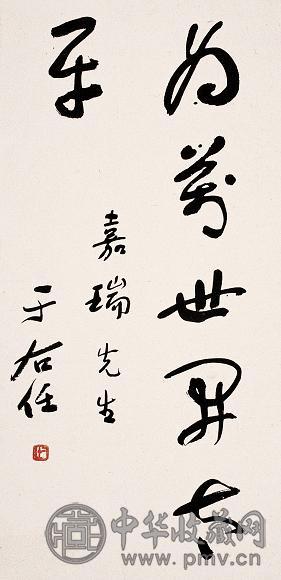 为万世开太
平
嘉瑞先生
于右任
中华收藏网
www.pmv.cn